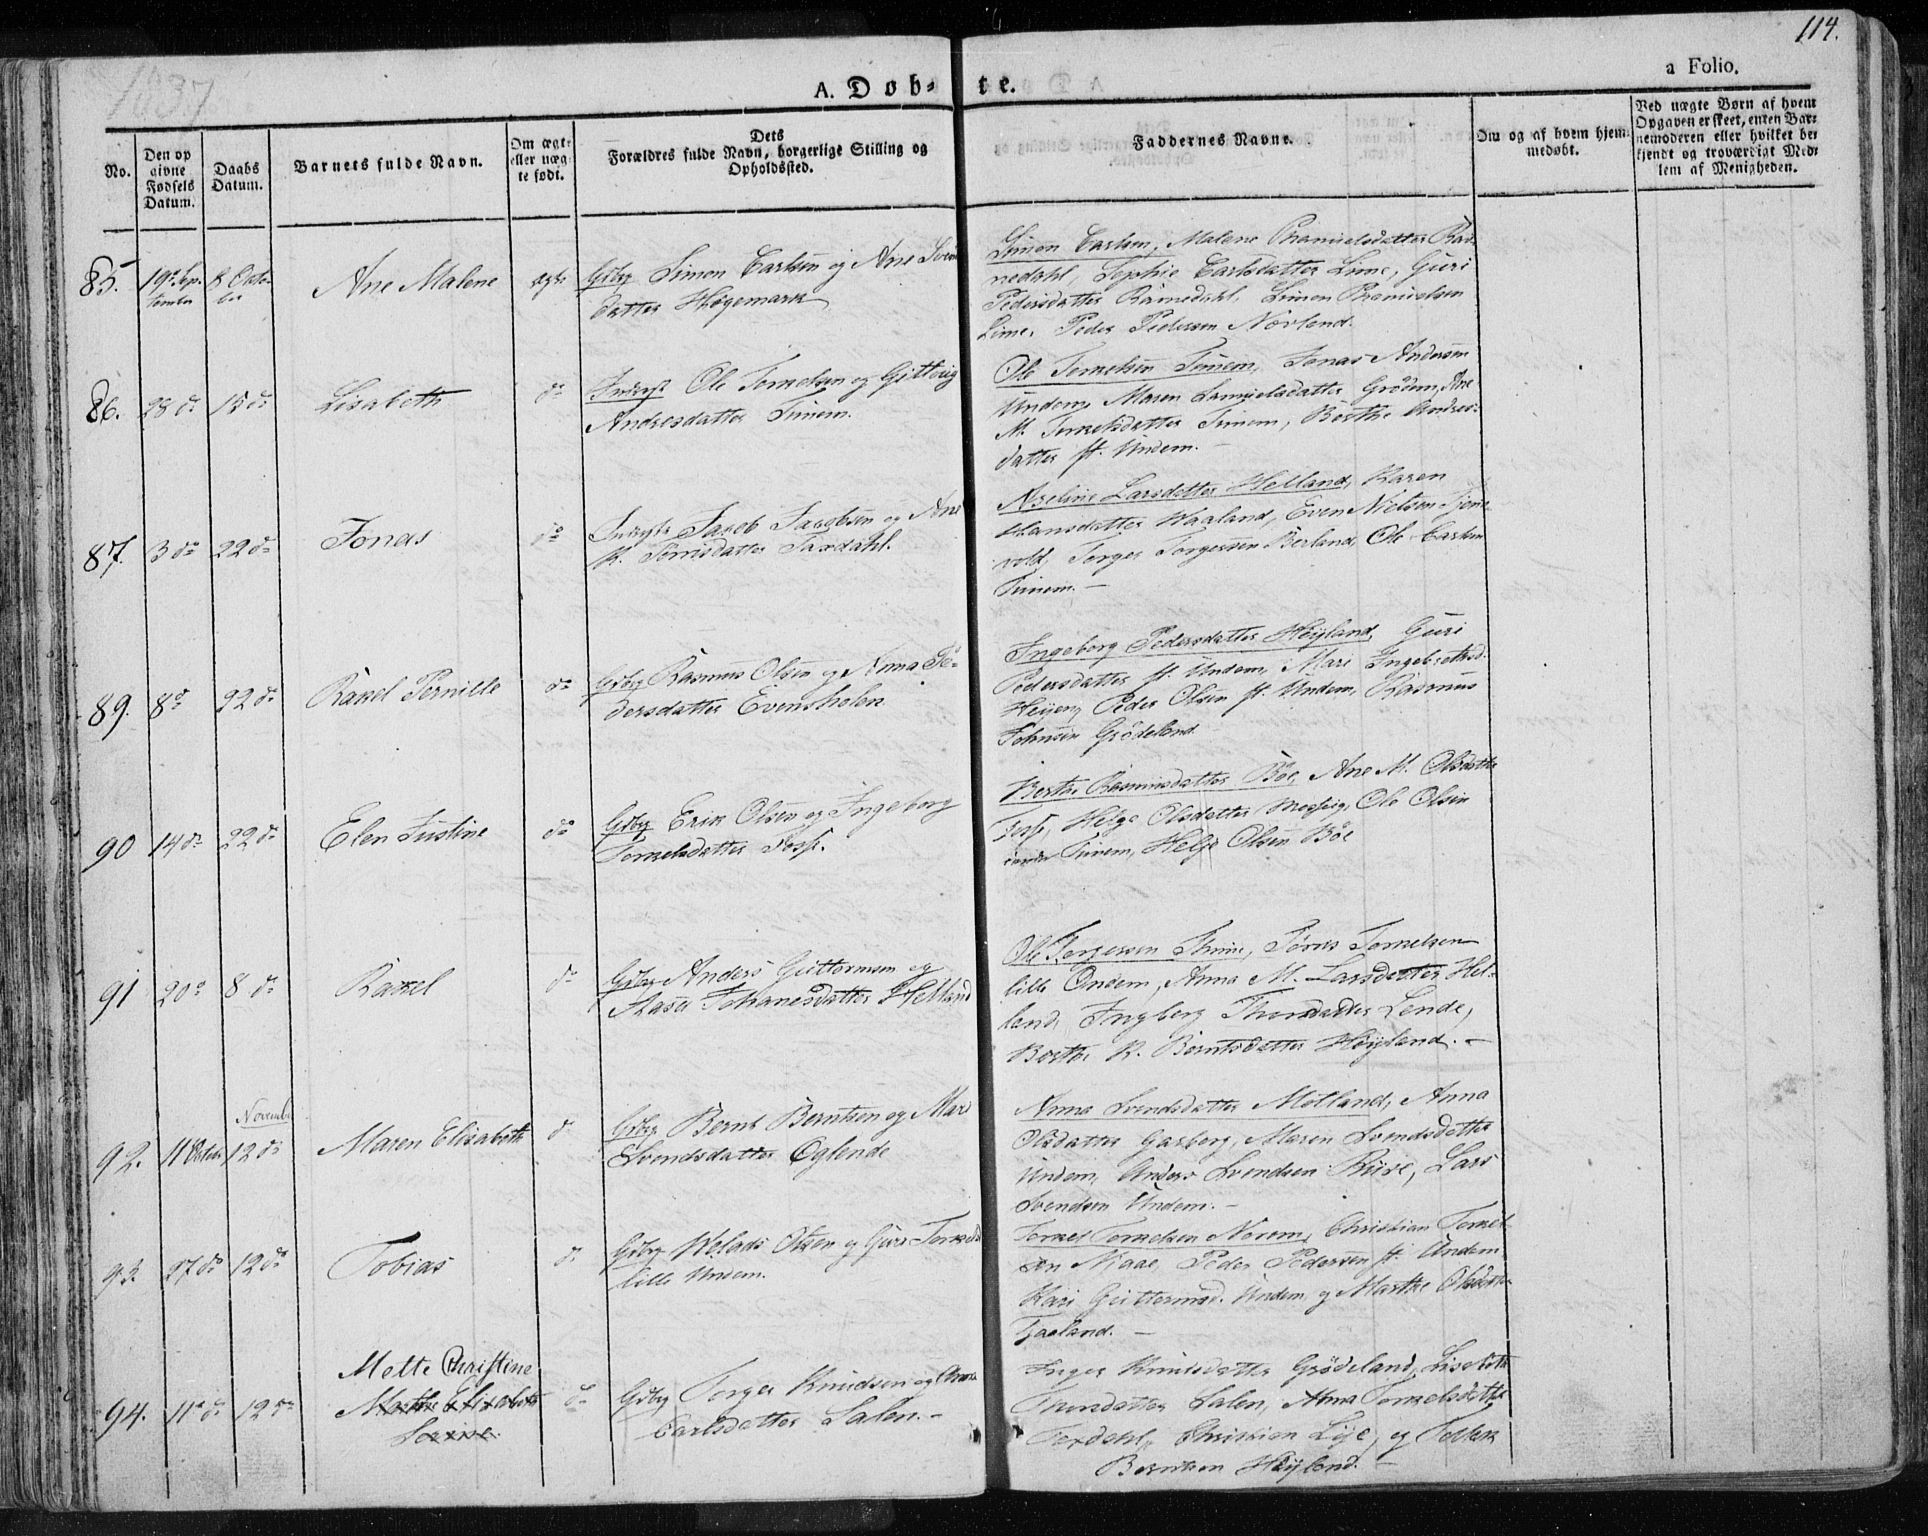 114.
1837
A. Døb-
te.
a Folio.
No.
Den op
givne
Fødsels
Datum.
Daabs
Datum.
Barnets fulde Navn.
Om ægte
eller uæg-
te født.
Dets
Forældres fulde Navn, borgerlige Stilling og
Opholdssted.
Faddernes Navne.
Om og af hvem hjem-
medøbt.
Ved uægte Børn af hvem
Opgaven er skeet, enten Bar-
nemoderen eller hvilket be-
kjendt og troværdigt Med-
lem af Menigheden.
85. 19de Sep-
tember
8 Octo-
ber
Ane Malene
Gbr Simon Carlsen og Ane
datter Høgemark
Simon Carlsen, Malene
Sophie Carlsdatter Lime, Guri
Pedersdatter Simon
Lime, Peder Pedersen Norland.
86. 28 do 15 do
Lisabeth
do
Ole Tornelsen og Gittorig
Andresdatter Timem.
Ole Tornelsen Timem, Jonas Andersen
Undem, Maren Samuelsdatter Grødem, Ane
M. Tornelsdatter Timem, Berthe Andres-
datter st. Undem.
87. 3 do 22 do
Jonas
do
Jacob Jacobsen og Ane
K. Tønnisdatter Taxdahl.
Axeline Larsdatter Helland, Karen
Hansdatter Waaland, Even Nielsen Tjens-
vold, Torger Torgersen Berland, Ole Carlsen
Timem.
89. 8de 22 do
Rakel Pernille
do
Gbr Rasmus Olsen og Anna Pe-
dersdatter Evensholen
Ingeborg Pedersdatter Høyland, Guri
Pedersdatter st. Undem, Mari Ingebretsd.
Peder Olsen st. Undem, Rasmus
Johnsen Grødeland
90 14 do 22 do
Elen Justine
do
Gbr Erik Olsen og Ingeborg
Tornelsdatter Foss.
Berthe Rasmusdatter Böe, Ane M. Olsdatter
Foss, Helge Olsdatter Ole Olsen
Timem, Helge Olsen Böe
91 20de 8 do
Rakel
do
Gbr Anders Guttormsen og
Aasa Johanesdatter Helland
Ole Torgersen Thime, Tørres Tornelsen
lille Ondem, Anna M. Larsdatter Hel-
land, Ingborg Thorsdatter Lende,
Berthe K. Berntsdatter Høyland.
92. 11 October
November
12 do
Maren Elisabeth
do
Gbr Bernt Berntsen og Mari
Svendsdatter Oglende
Anna Svendsdatter Motland, Anna
Olsdatter Garborg, Maren Svendsdatter
Undem, Anders Svendsen Lars
Svendsen Undem.
93. 27 do 12 do
Tobias
do
Gbr Welads Olsen og Guri
lille Undem.
Tornel Tornelsen Norem, Christian Tornel-
sen Njaae, Peder Pedersen st. Undem
Kari Guttormsd. Undem og Marthe Olsdatter
Fjaaland.
94. 11te do 12 do
Mette Christine
Marthe Elisabeth
do
Gbr Torger Knudsen og Anna
Carlsdatter Salen.
Inger Knudsdatter Grødeland, Lisabeth
Thorsdatter Salen, Anna Tornelsdatter
Christian Lye, og
Berntsen Høyland.